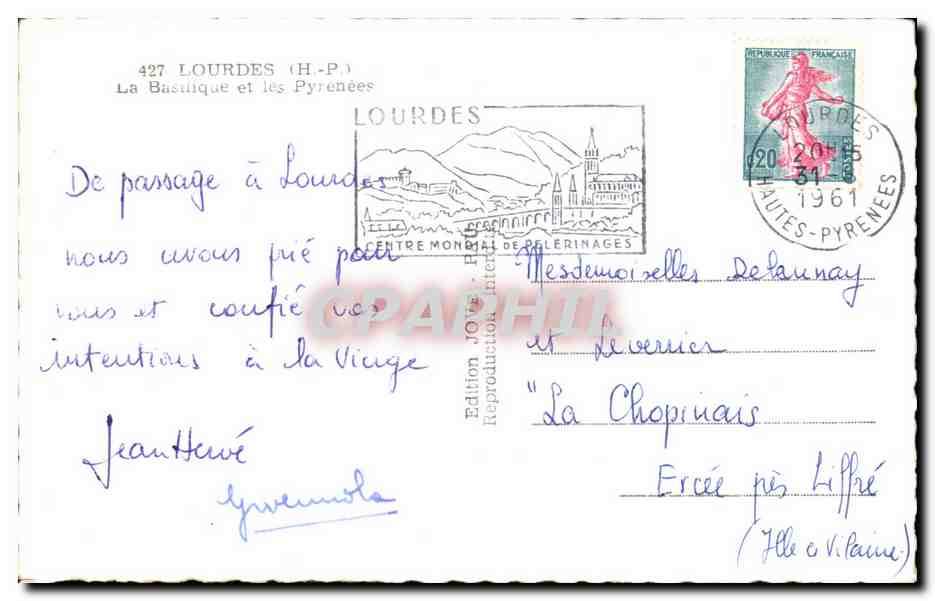 427 LOURDES (H.-P.)
La Basilique et les Pyrénées
LOURDES
CENTRE MONDIAL DE PELERINAGES
REPUBLIQUE FRANÇAISE
0,20
POSTES
LOURDES
31-8
1961
HAUTES-PYRENEES
De passage à Lourdes
nous avons prié pour
vous et confié vos
intentions à la Vierge
Jean Hervé
Gwennola
Edition JOVE - PAU
Reproduction Interdite
CPAPHIL
Mesdemoiselles Delaunay
et Levernier
"La Chopinais
Ercée près Liffré
(Ille & Vilaine)